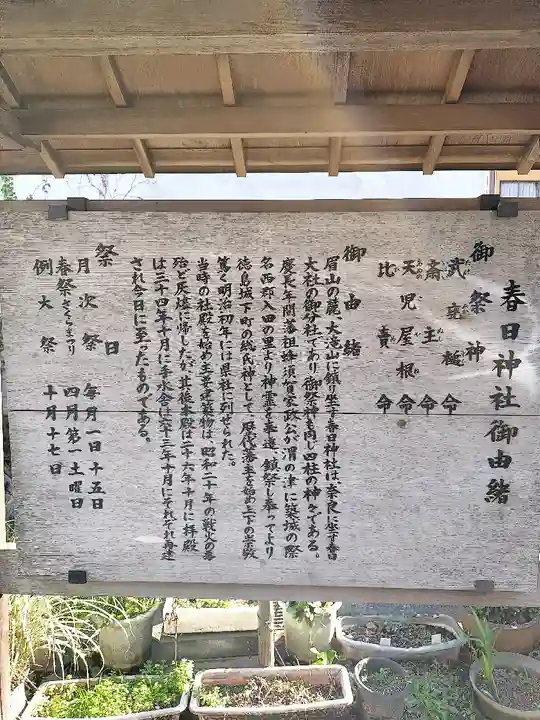 春日神社御由緒
御祭神
武甕槌命
斎主命
天児屋根命
比売命
御由緒
眉山の麓、大滝山に鎮り坐す春日神社は、奈良に坐す春日
大社の御分社であり、御祭神も同じ四柱の神々である。
慶長年間藩祖蜂須賀家政公が渭の津に築城の際
名西郡入田の里より神霊を奉遷、鎮祭し奉ってより
徳島城下町の総氏神として、歴代藩主を始め上下の崇敬
篤く明治初年には県社に列せられた。
当時の社殿を始め主要建築物は、昭和二十年の戦火の為
殆ど灰燼に帰したが、其後本殿は二十六年十月に拝殿
は三十四年十月に手水舎は六十三年十月にそれぞれ再建
され今日に至ったものである。
祭日
月次祭 毎月一日十五日
春祭さくらまつり 四月第一土曜日
例大祭 十月十七日